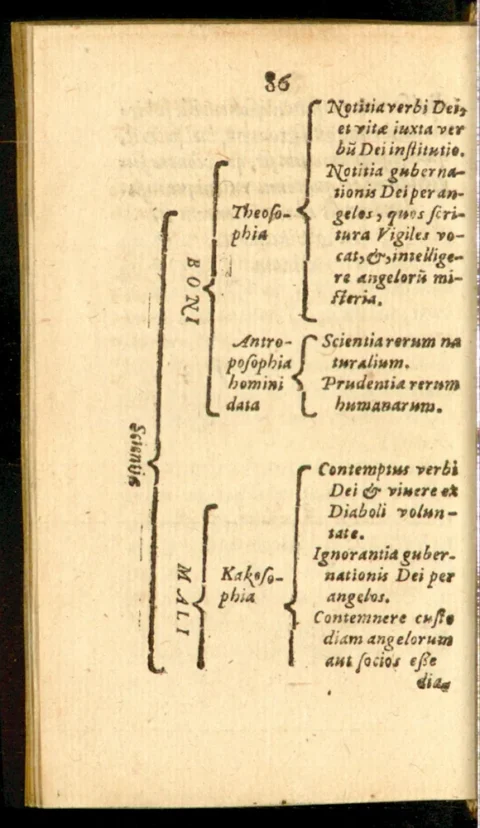 86
Scientia
BONI
Theoso-
phia
Notitia verbi Dei,
et vitæ iuxta ver
bũ Dei institutio.
Notitia guberna-
tionis Dei per an-
gelos, quos scri-
tura Vigiles vo-
cat, &, intellige-
re angelorũ mi-
steria.
Antro-
posophia
homini
data
Scientia rerum na
turalium.
Prudentia rerum
humanarum.
MALI
Kakoso-
phia
Contemptus verbi
Dei & vivere ex
Diaboli volun-
tate.
Ignorantia guber-
nationis Dei per
angelos.
Contemnere custo
diam angelorum
aut socios esse
dia